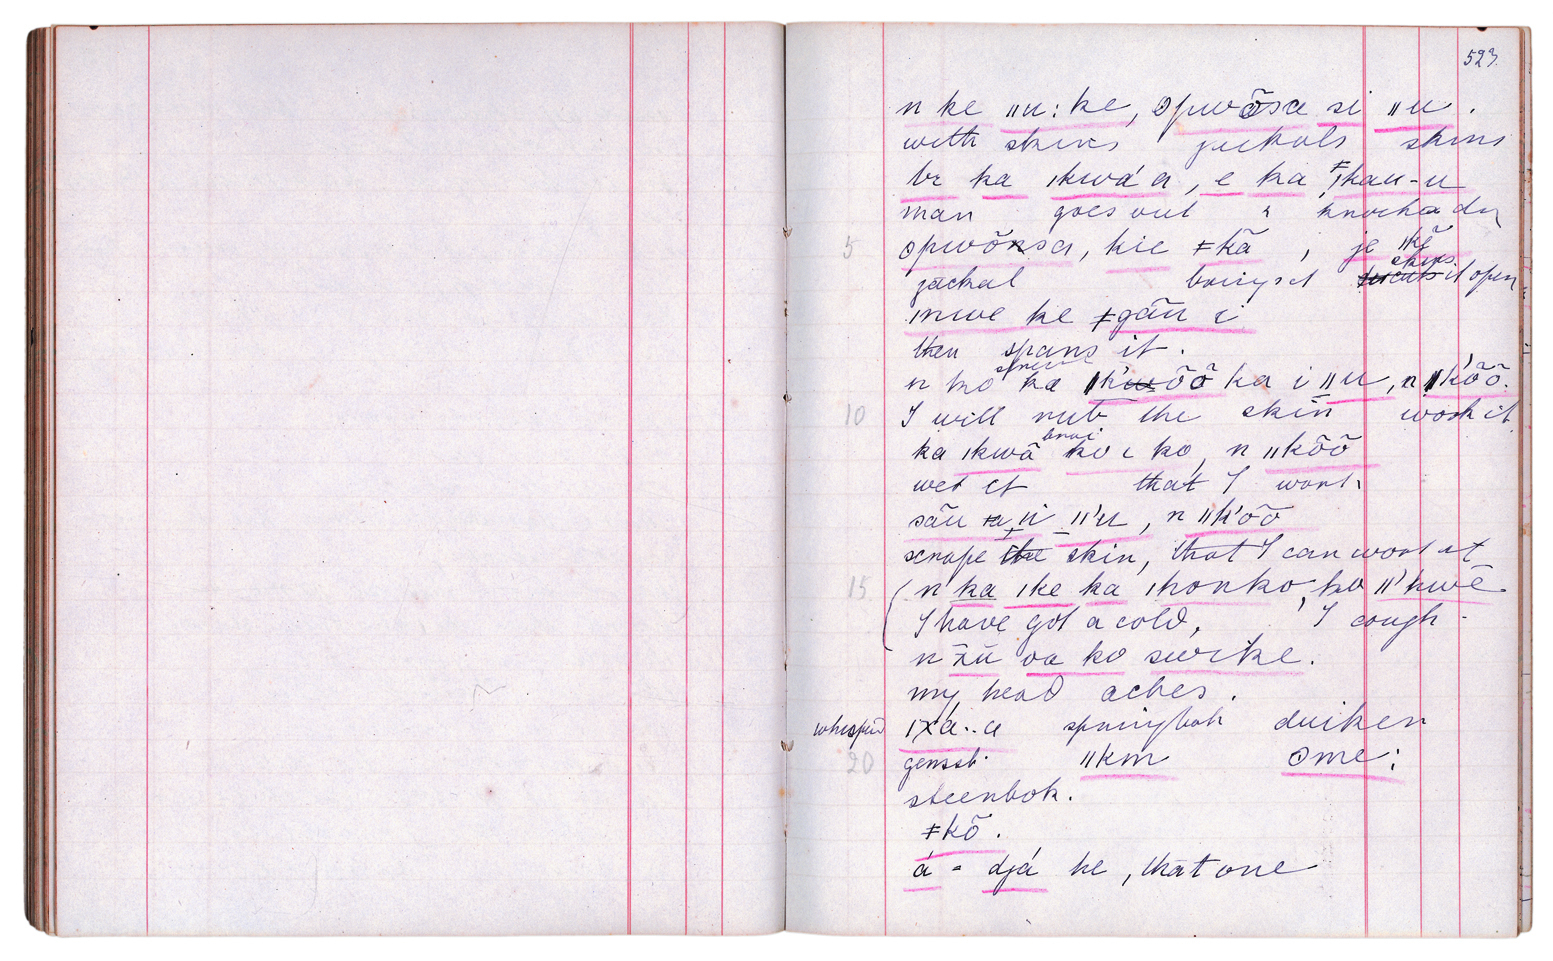 523
n ke ǁu: ke, ʘpwõsa si ǁu.
with skins jackals skins
ka ǀkwá a, e ka ǂkau-u
man goes out & knocks dn
5 ʘpwõnsa, kie ǂkã, je ǁkẽ
jackal brings it skins it open
ǀnwe ke ǂgãu i
then spans it.
n ko ka ǁk'õõ ka i ǁu, n ǁk'õõ.
10 I will rub the skin work it
ka ǀkwã ko ι ko, n ǁkõõ
wet it that I work
sãu ǁ'u, n ǁk'õõ
scrape the skin, that I can work it
15 n ka ǀke ka ǀhonko, ko ǁ'kwẽ
I have got a cold, I cough.
n oa ko swike.
my head aches.
whisper'd ǀxá..a springbok duiker
20 gemsb. ǁkm ʘme:
steenbok.
ǂkõ.
á = djá he, that one